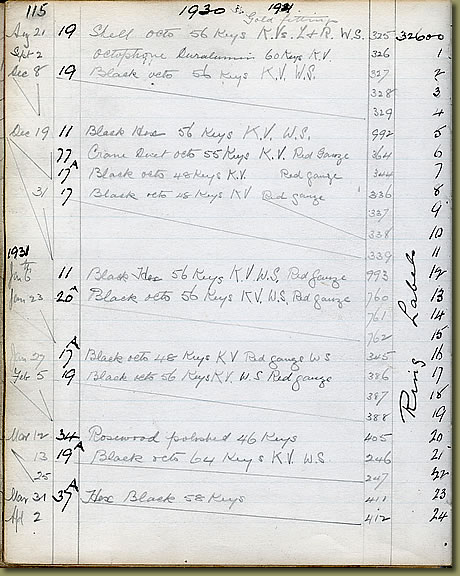 115 1930 & 1931
Gold fittings
Aug 21 19 Shell octo 56 Keys K.V. L+R. W.S. 325 32600
Sept 2 octophone Duralumin 60 Keys K.V. 326 1
Dec 8 19 Black octo 56 Keys K.V. W.S. 327 2
328 3
329 4
Dec 19 11 Black Hex 56 Keys K.V. W.S. 992 5
77 Crane Duet octo 55 Keys K.V. Red Gauze 364 6
17A Black octo 48 Keys K.V. Red gauze 344 7
31 17 Black octo 48 Keys KV Red gauze 336 8
337 9
338 10
1931 339 11
Jan 6th 11 Black Hex 56 Keys K.V. W.S. Red Gauze 993 12
Jan 23 20A Black octo 56 Keys K.V. W.S. Red gauze 760 13
761 14
762 15
Jan 27 17A Black octo 48 Keys K.V Red gauze WS 345 16
Feb 5 19 Black octo 56 Keys K.V. W.S Red gauze 386 17
387 18
388 19
Mar 12 34 Rosewood polished 46 Keys 405 20
13 19A Black octo 64 Keys K.V. W.S. 246 21
25 247 22
Mar 31 37A Hex Black 58 Keys 411 23
Apl 2 412 24
Ring Labels